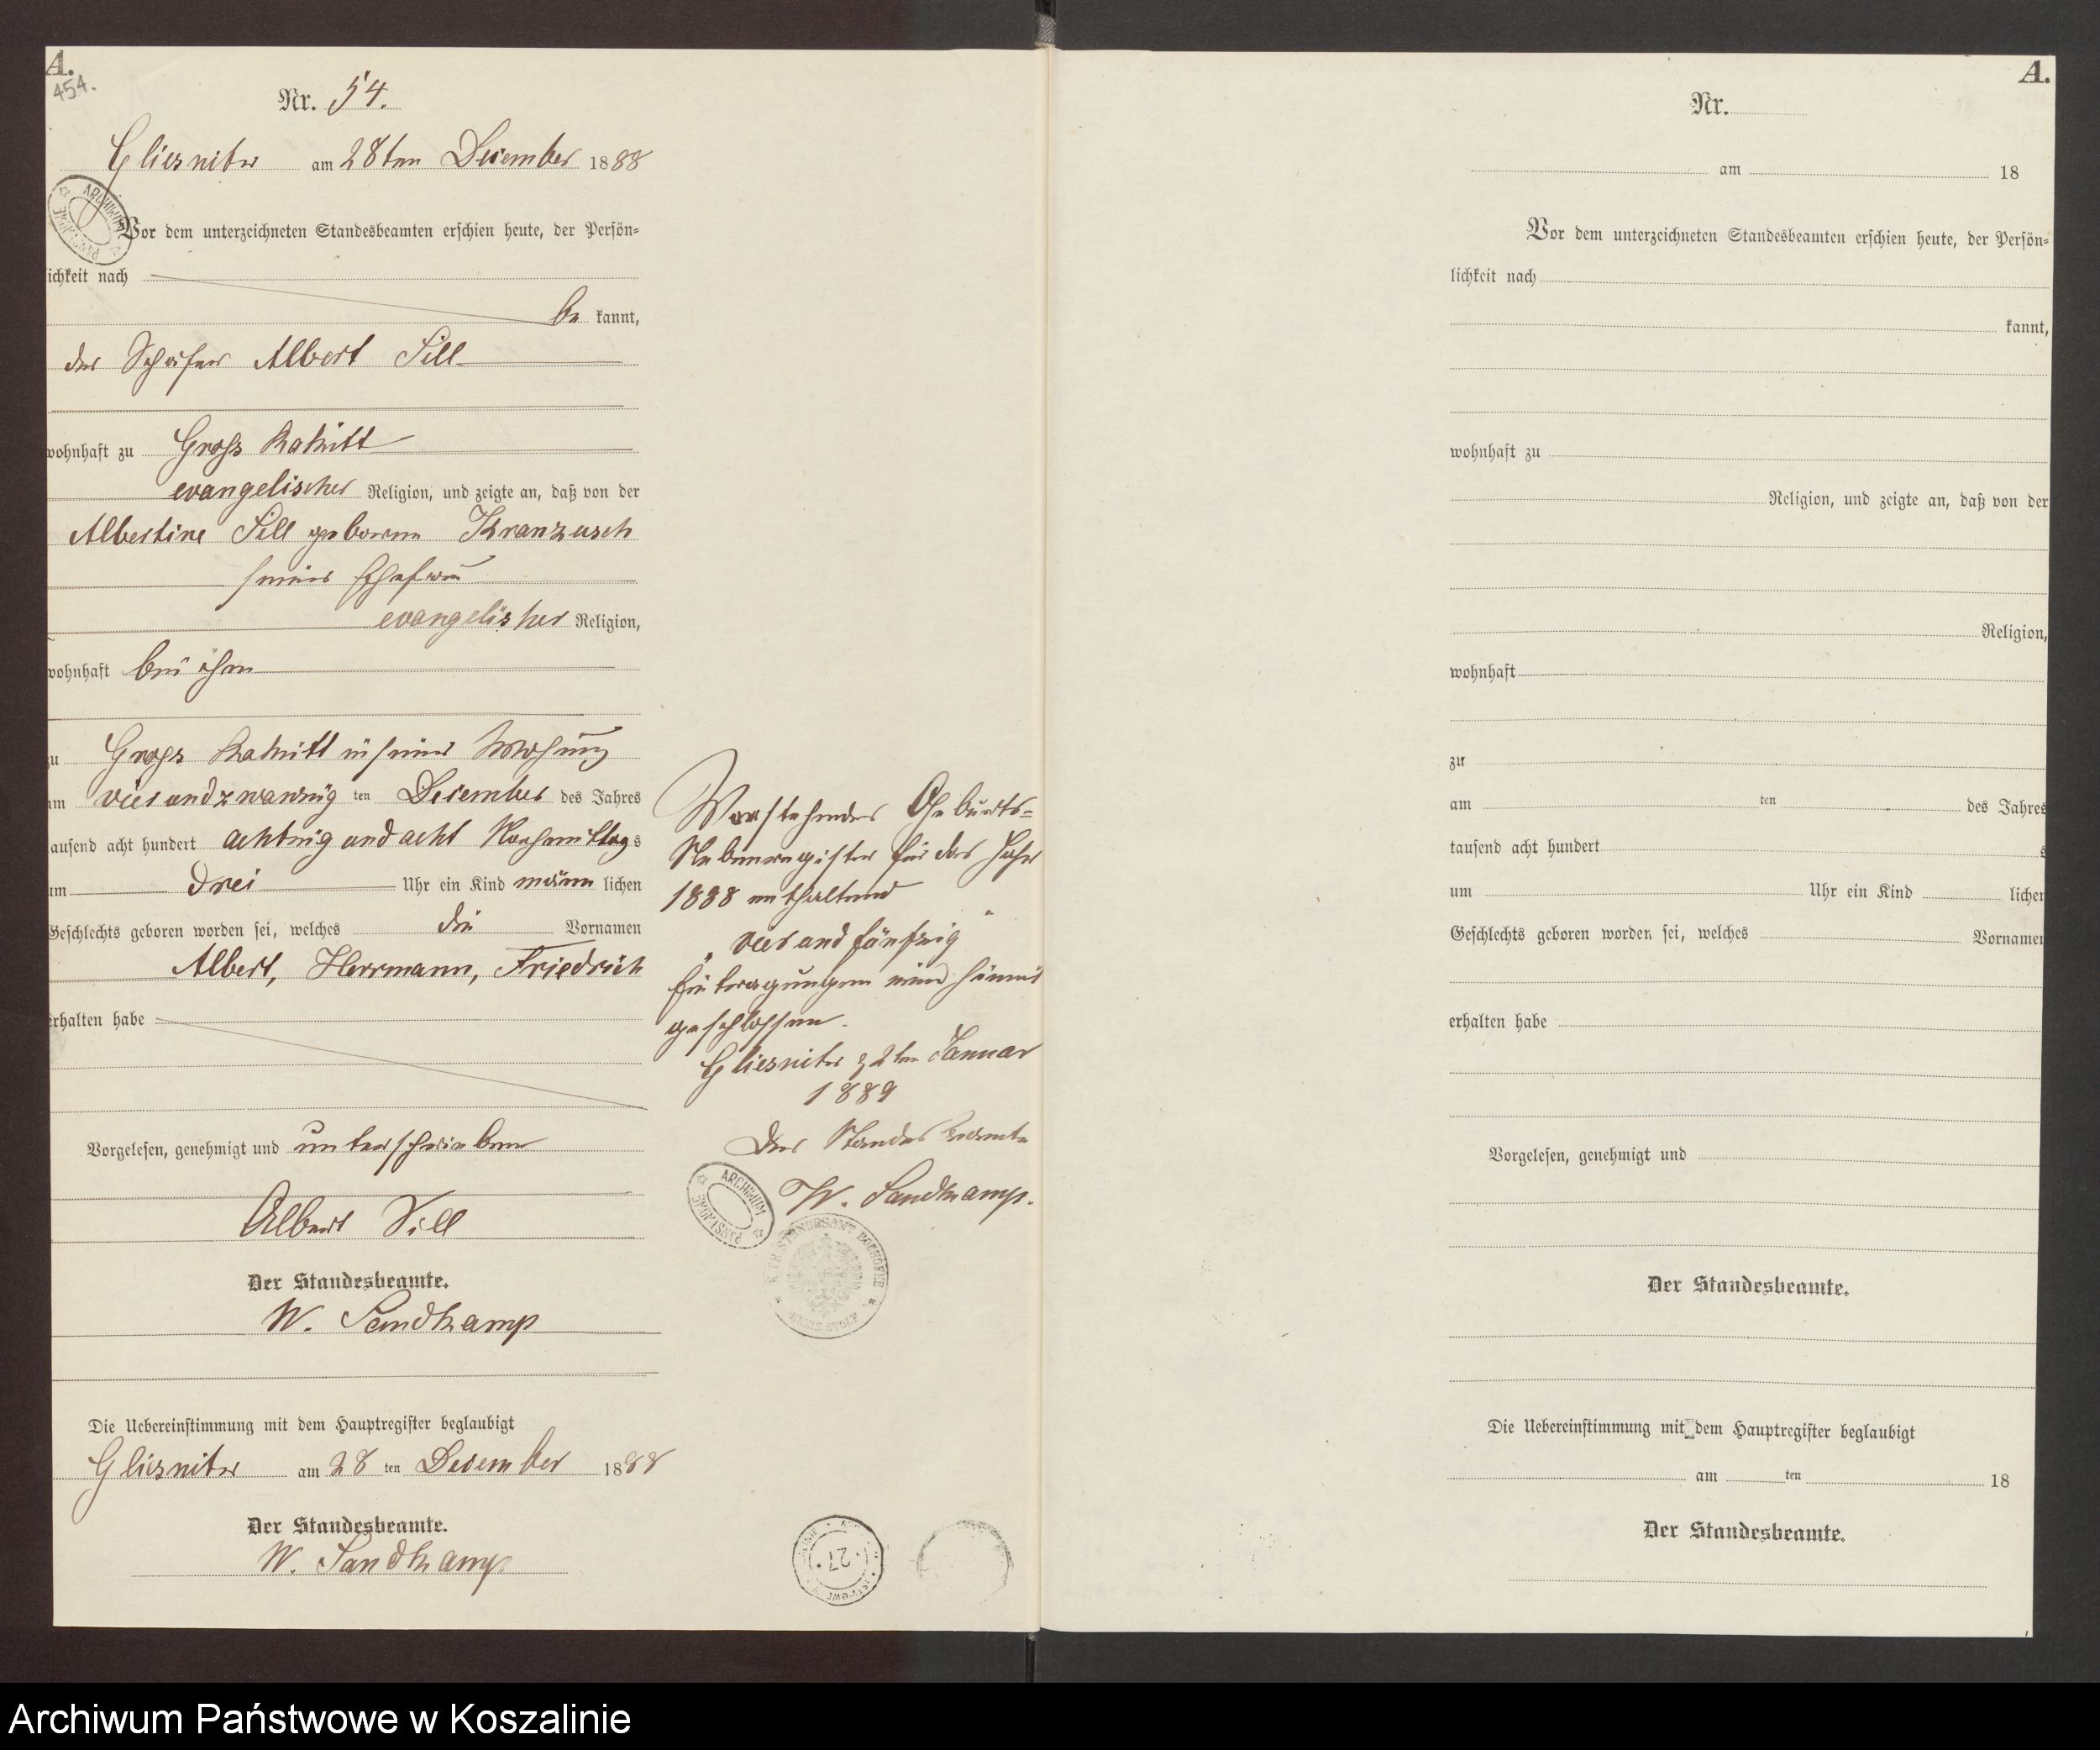 A.
454.
Nr. 54.
Gliesnitz am 28ten December 1888
Vor dem unterzeichneten Standesbeamten erschien heute, der Persön=
lichkeit nach
be kannt,
der Schäfer Albert Sill
wohnhaft zu Gross Rakitt
evangelischer Religion, und zeigte an, daß von der
Albertine Sill geborene Kranzusch
seiner Ehefrau
evangelischer Religion,
wohnhaft bei ihm
zu Gross Rakitt in seiner Wohnung
am vierundzwanzig ten December des Jahres
tausend acht hundert achtzig und acht Nachmittags
um drei Uhr ein Kind männ lichen
Geschlechts geboren worden sei, welches die Vornamen
Albert, Herrmann, Friedrich
erhalten habe
Vorgelesen, genehmigt und unterschrieben
Albert Sill
Der Standesbeamte.
W. Sandkamp
Die Uebereinstimmung mit dem Hauptregister beglaubigt
Gliesnitz am 28 ten December 1888
Der Standesbeamte.
W. Sandkamp
Vorstehendes Geburts=
Nebenregister für das Jahr
1888 enthaltend
„vier und fünfzig"
Eintragungen wird hiermit
geschlossen.
Gliesnitz 2ten Januar
1889
Der Standesbeamte
W. Sandkamp.
ARCHIWUM
PAŃSTWOWE
27
A.
Nr.
am 18
Vor dem unterzeichneten Standesbeamten erschien heute, der Persön=
lichkeit nach
kannt,
wohnhaft zu
Religion, und zeigte an, daß von der
Religion,
wohnhaft
zu
am ten des Jahres
tausend acht hundert s
um Uhr ein Kind lichen
Geschlechts geboren worden sei, welches Vornamen
erhalten habe
Vorgelesen, genehmigt und
Der Standesbeamte.
Die Uebereinstimmung mit dem Hauptregister beglaubigt
am ten 18
Der Standesbeamte.
Archiwum Państwowe w Koszalinie